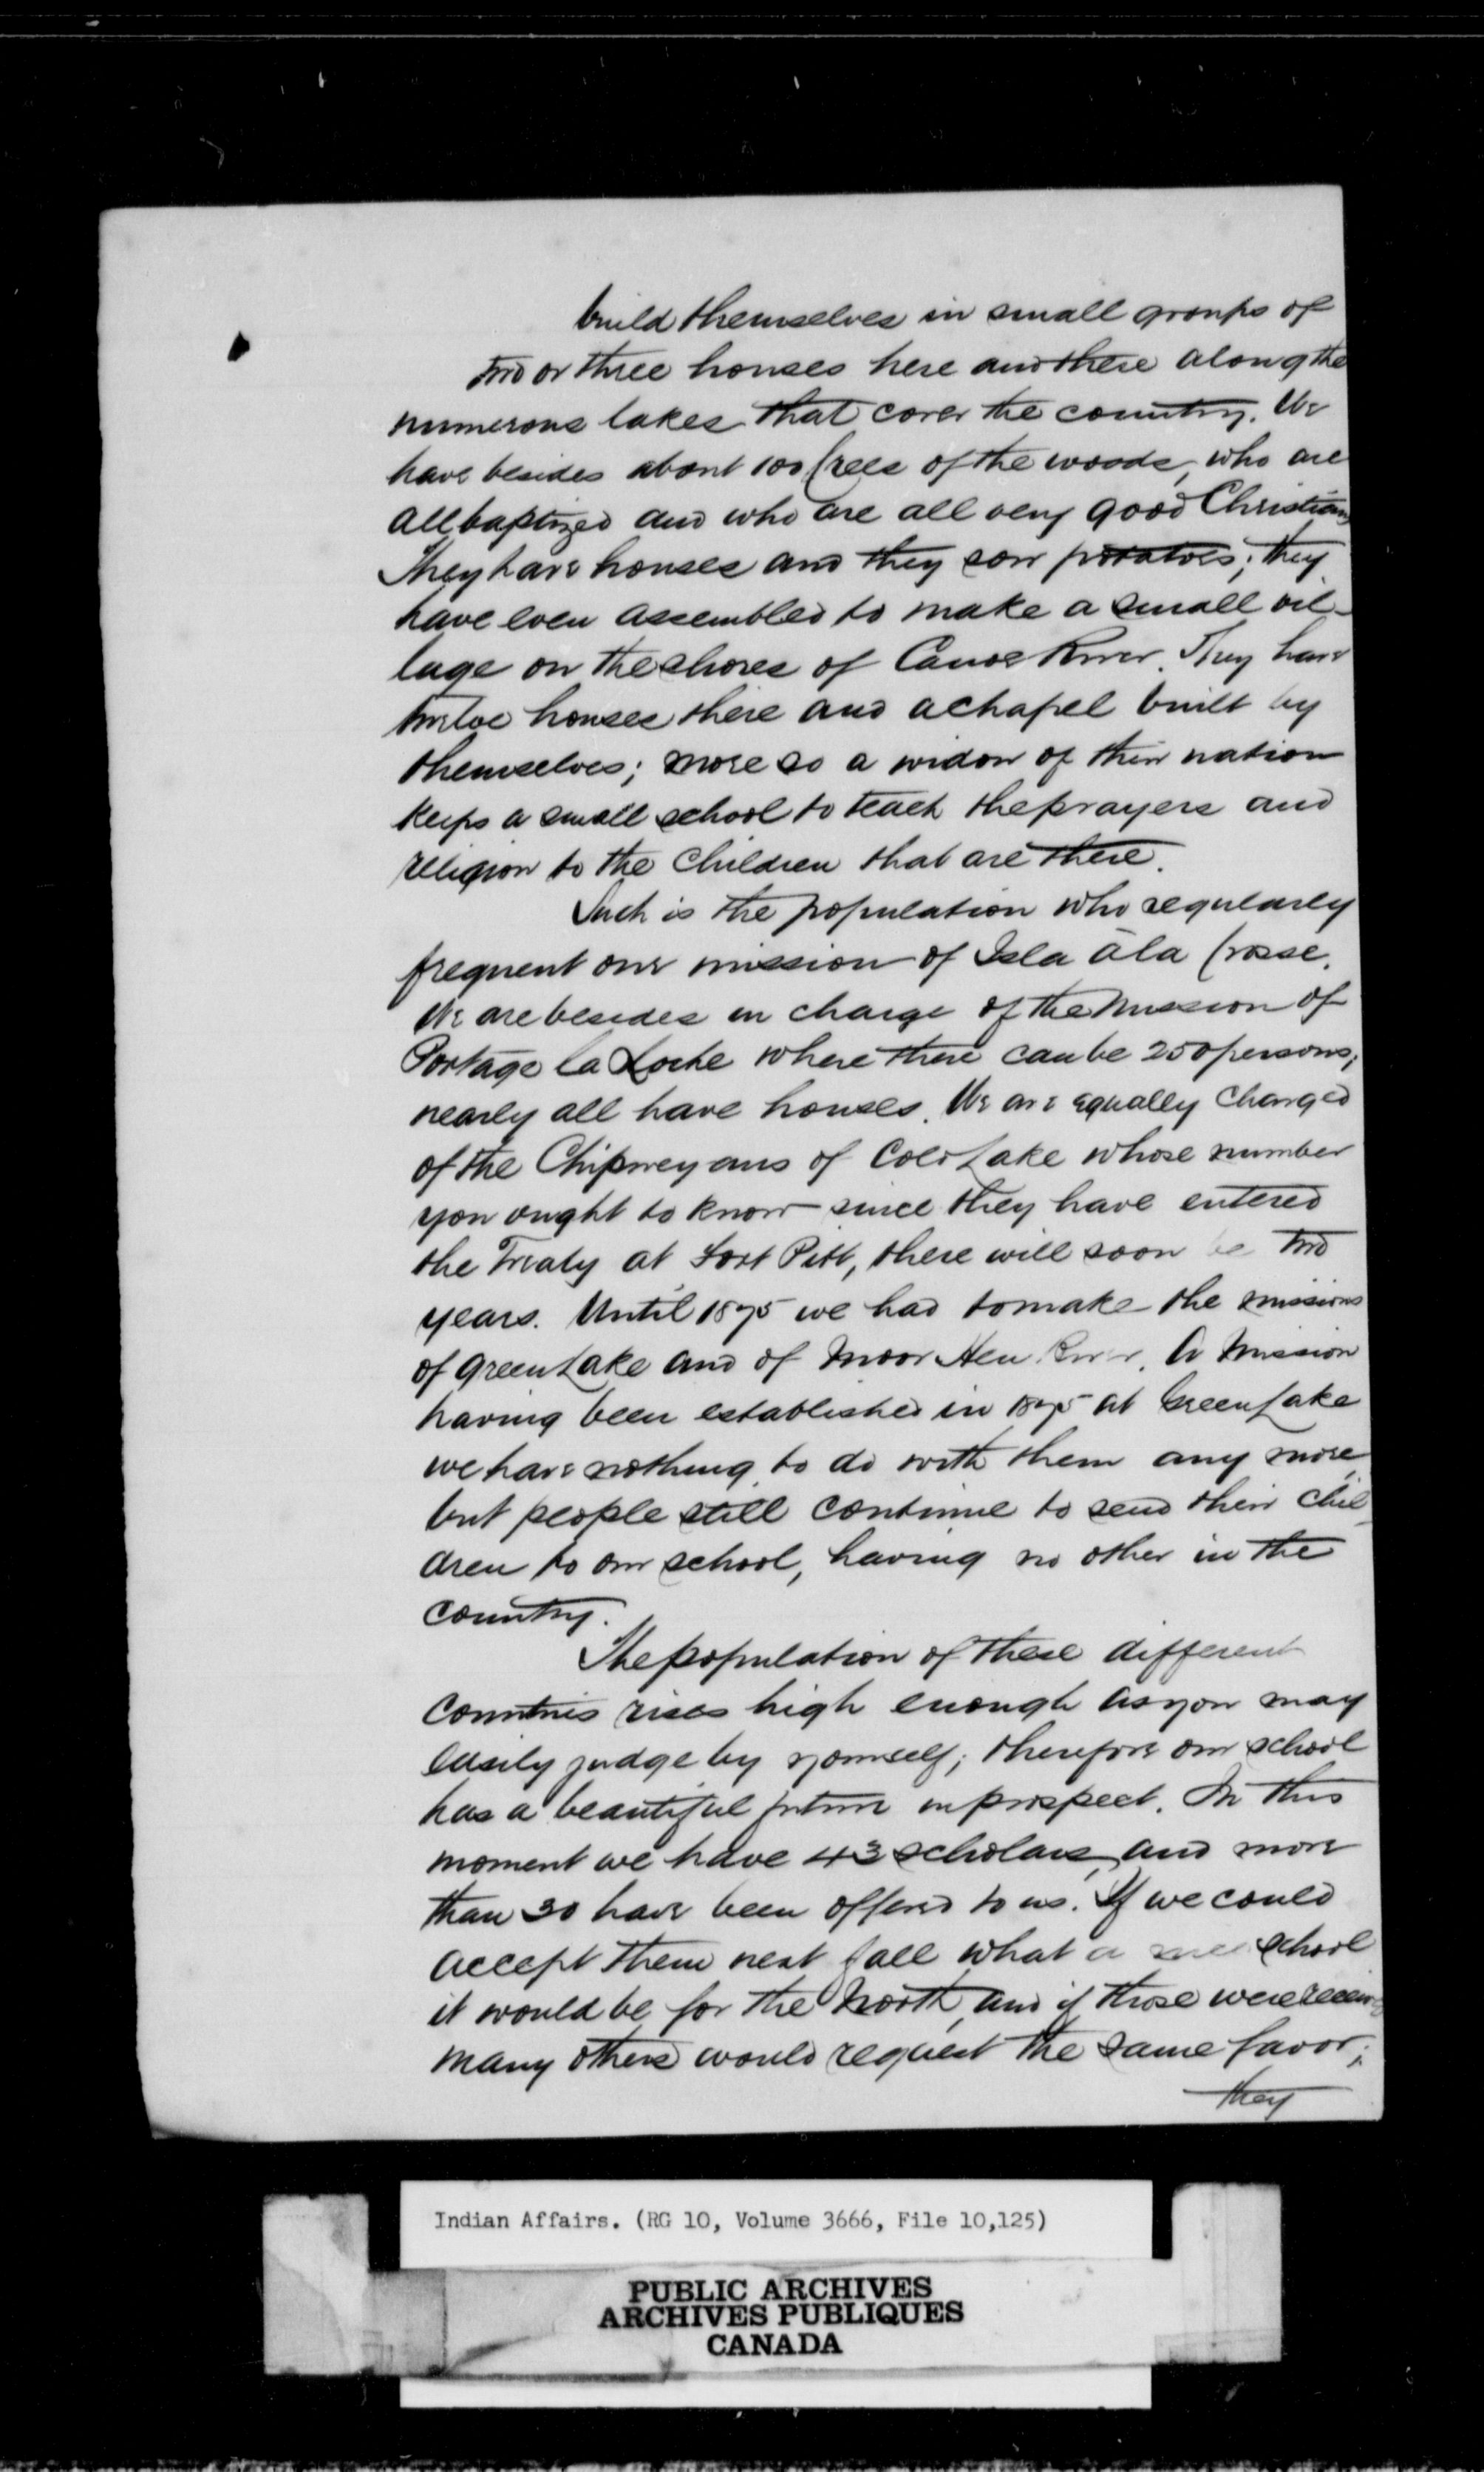 build themselves in small groups of
two or three houses here and there along the
numerous lakes that cover the country. We
have besides about 100 Crees of the woods, who are
all baptized and who are all very good Christians
They have houses and they sow potatoes; they
have even assembled to make a small vil-
lage on the shores of Canoe River. They have
twelve houses there and a chapel built by
themselves; more so a widow of their nation
keeps a small school to teach the prayers and
religion to the children that are there.
Such is the population who regularly
frequent our mission of Isla à la Crosse.
We are besides in charge of the Mission of
Portage la Loche where there can be 250 persons;
nearly all have houses. We are equally charged
of the Chipweyans of Cold Lake whose number
you ought to know since they have entered
the Treaty at Fort Pitt, there will soon be two
years. Until 1875 we had to make the missions
of Green Lake and of Moor Hen River. A Mission
having been established in 1875 at Green Lake
we have nothing to do with them any more,
but people still continue to send their chil-
dren to our school, having no other in the
country.
The population of these different
countries rises high enough as you may
easily judge by yourself; therefore our school
has a beautiful future in prospect. In this
moment we have 43 scholars, and more
than 30 have been offered to us. If we could
accept them next fall what a school
it would be for the North, and if those were
many others would request the same favor;
they
Indian Affairs. (RG 10, Volume 3666, File 10,125)
PUBLIC ARCHIVES
ARCHIVES PUBLIQUES
CANADA